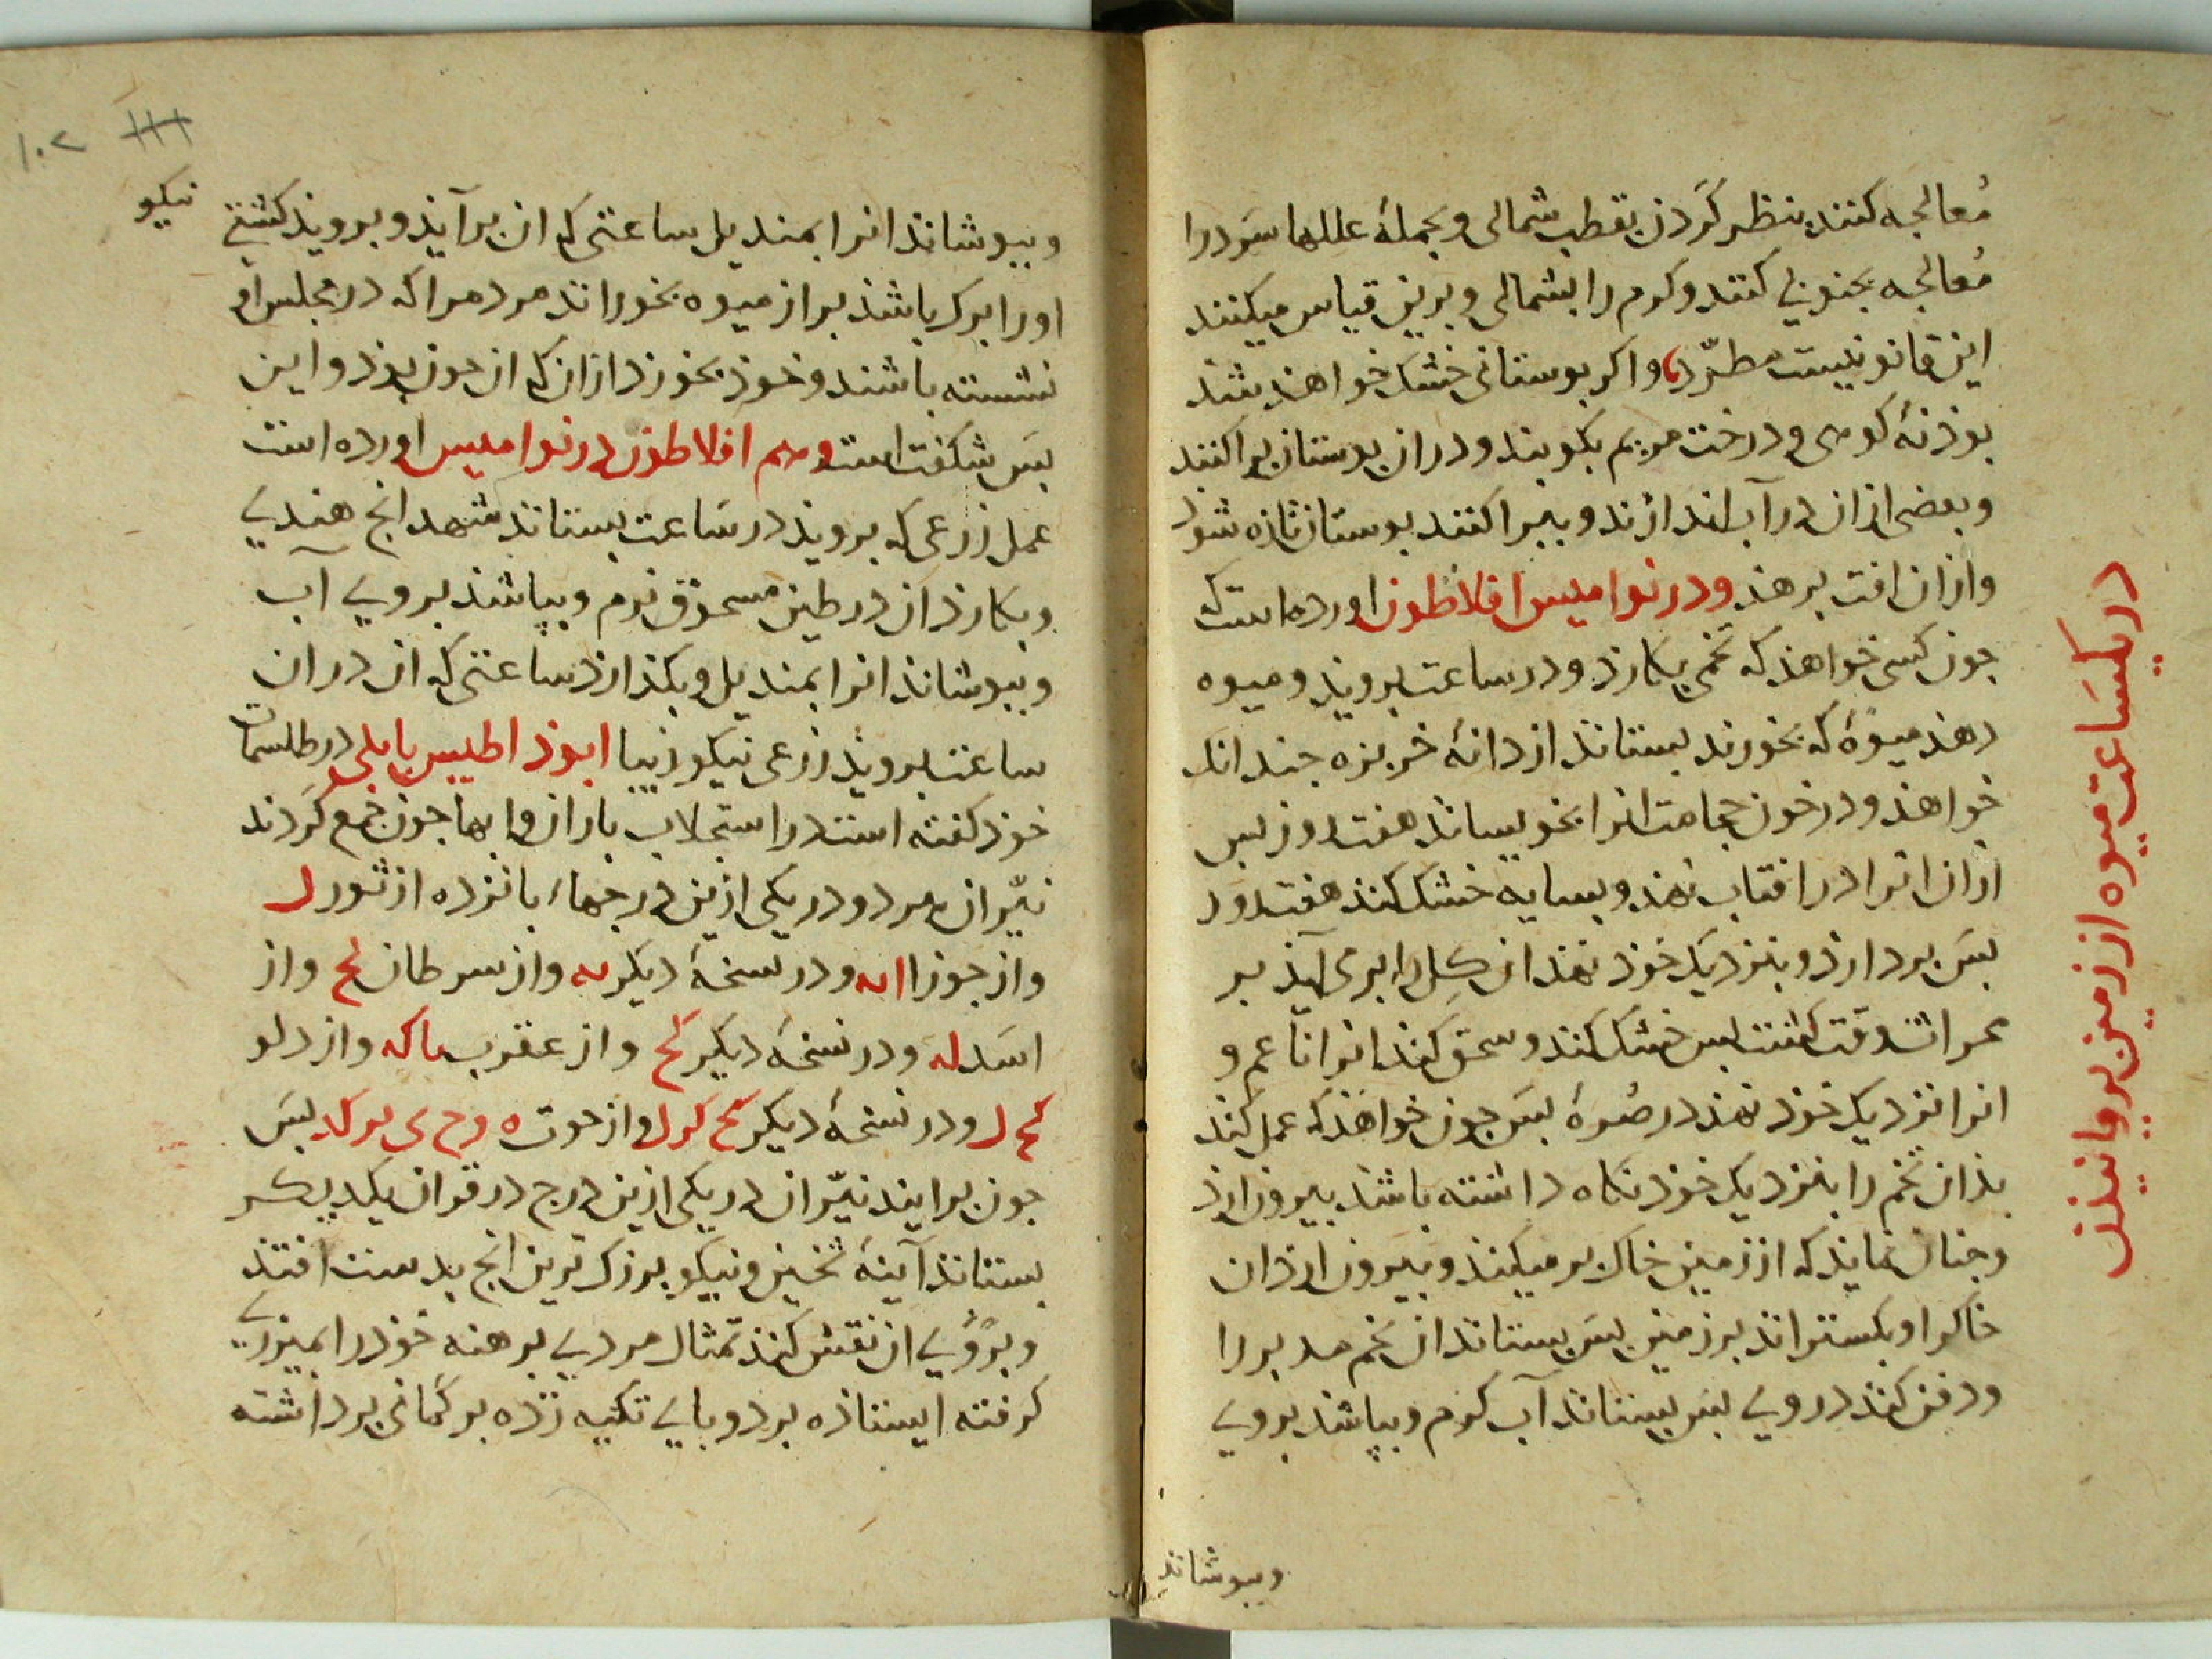 معالجه کنند بنظر کردن بقطب شمالی و بجملهٔ عللها سرد را
معالجه بجنوبی کنند و گرم را بشمالی و برین قیاس میکنند
این قانونیست مطرّد و اکر بوستانی خشک خواهذ شذ
بوذنهٔ کوهی و درخت مریم بکوبند و دران بوستان براکنند
و بعضی ازان در آب اندازند و ببراکنند بوستان تازه شوذ
و ازان افت برهذ و در نوامیس افلاطون اورده است که
جون کسی خواهذ که تخمی بکارذ و در ساعت برویذ و میوه
دهذ میوهٔ که بخورند بستانذ از دانهٔ خربزه جندانک
خواهذ و در خون حجامت انرا بخویسانذ هفت روز بس
ازان انرا در افتاب نهذ و بسایه خشک کنذ هفت روز
بس بردارذ و بنزدیک خوذ نهذ ان کل را برمی آیذ بر
محراث وقت کشت بس خشک کنذ و سحق کنذ انرا ناعم و
انرا نزدیک خوذ نهذ در صرهٔ بس جون خواهذ که عمل کنذ
بذان تخم را بنزدیک خوذ نکاه داشته باشذ بیرون ارذ
و جنان نمایذ که از زمین خاک برمیکند و بیرون ارذ ان
خاک را و بکستراند بر زمین بس بستانذ ان تخم مدبر را
و دفن کنذ در وی بس بستانذ آب کرم و بپاشذ بر وی
وببوشانذ
در یکساعت میوه از زمین برویانیذن
۱۰۲
نیکو
و ببوشانذ انرا بمندیل ساعتی که ان برآیذ و برویذ کشتی
او را برک باشذ بر از میوه بخورانذ مردم را که در مجلس او
نشسته باشند و خوذ بخورذ ازان که ان جون بوذ و این
بس شکفت است و هم افلاطون در نوامیس اورده است
عمل زرعی که برویذ در ساعت بستانذ شهدانج هندی
و بکارذ ان در طین مسحوق نرم و بپاشذ بر وی آب
و ببوشانذ انرا بمندیل و بکذارذ ساعتی که ان دران
ساعت برویذ زرعی نیکو زیبا ابوذاطیس بابلی در طلسمات
خوذ کفته است در استجلاب باران و ابها جون جمع کردند
نیّران هر دو در یکی ازین درجهاء بانزده از ثور ل
و از جوزا اىه و در نسخهٔ دیکر ىه و از سرطان لح و از
اسد له و در نسخهٔ دیکر لح و از عقرب ىا که و از دلو
لح ل و در نسخهٔ دیکر لح کر ل و از حوت ه و ح ی ىو کد بس
جون برایند نیّران در یکی ازین درج در قران یکدیکر
بستانذ آینهٔ ثخین و نیکو بزرک ترین انج بدست افتذ
و بر روی ان نقش کنذ تمثال مردی برهنه خوذ را بمیزری
کرفته ایستاذه بر دو بای تکیه زده بر کمانی برداشته